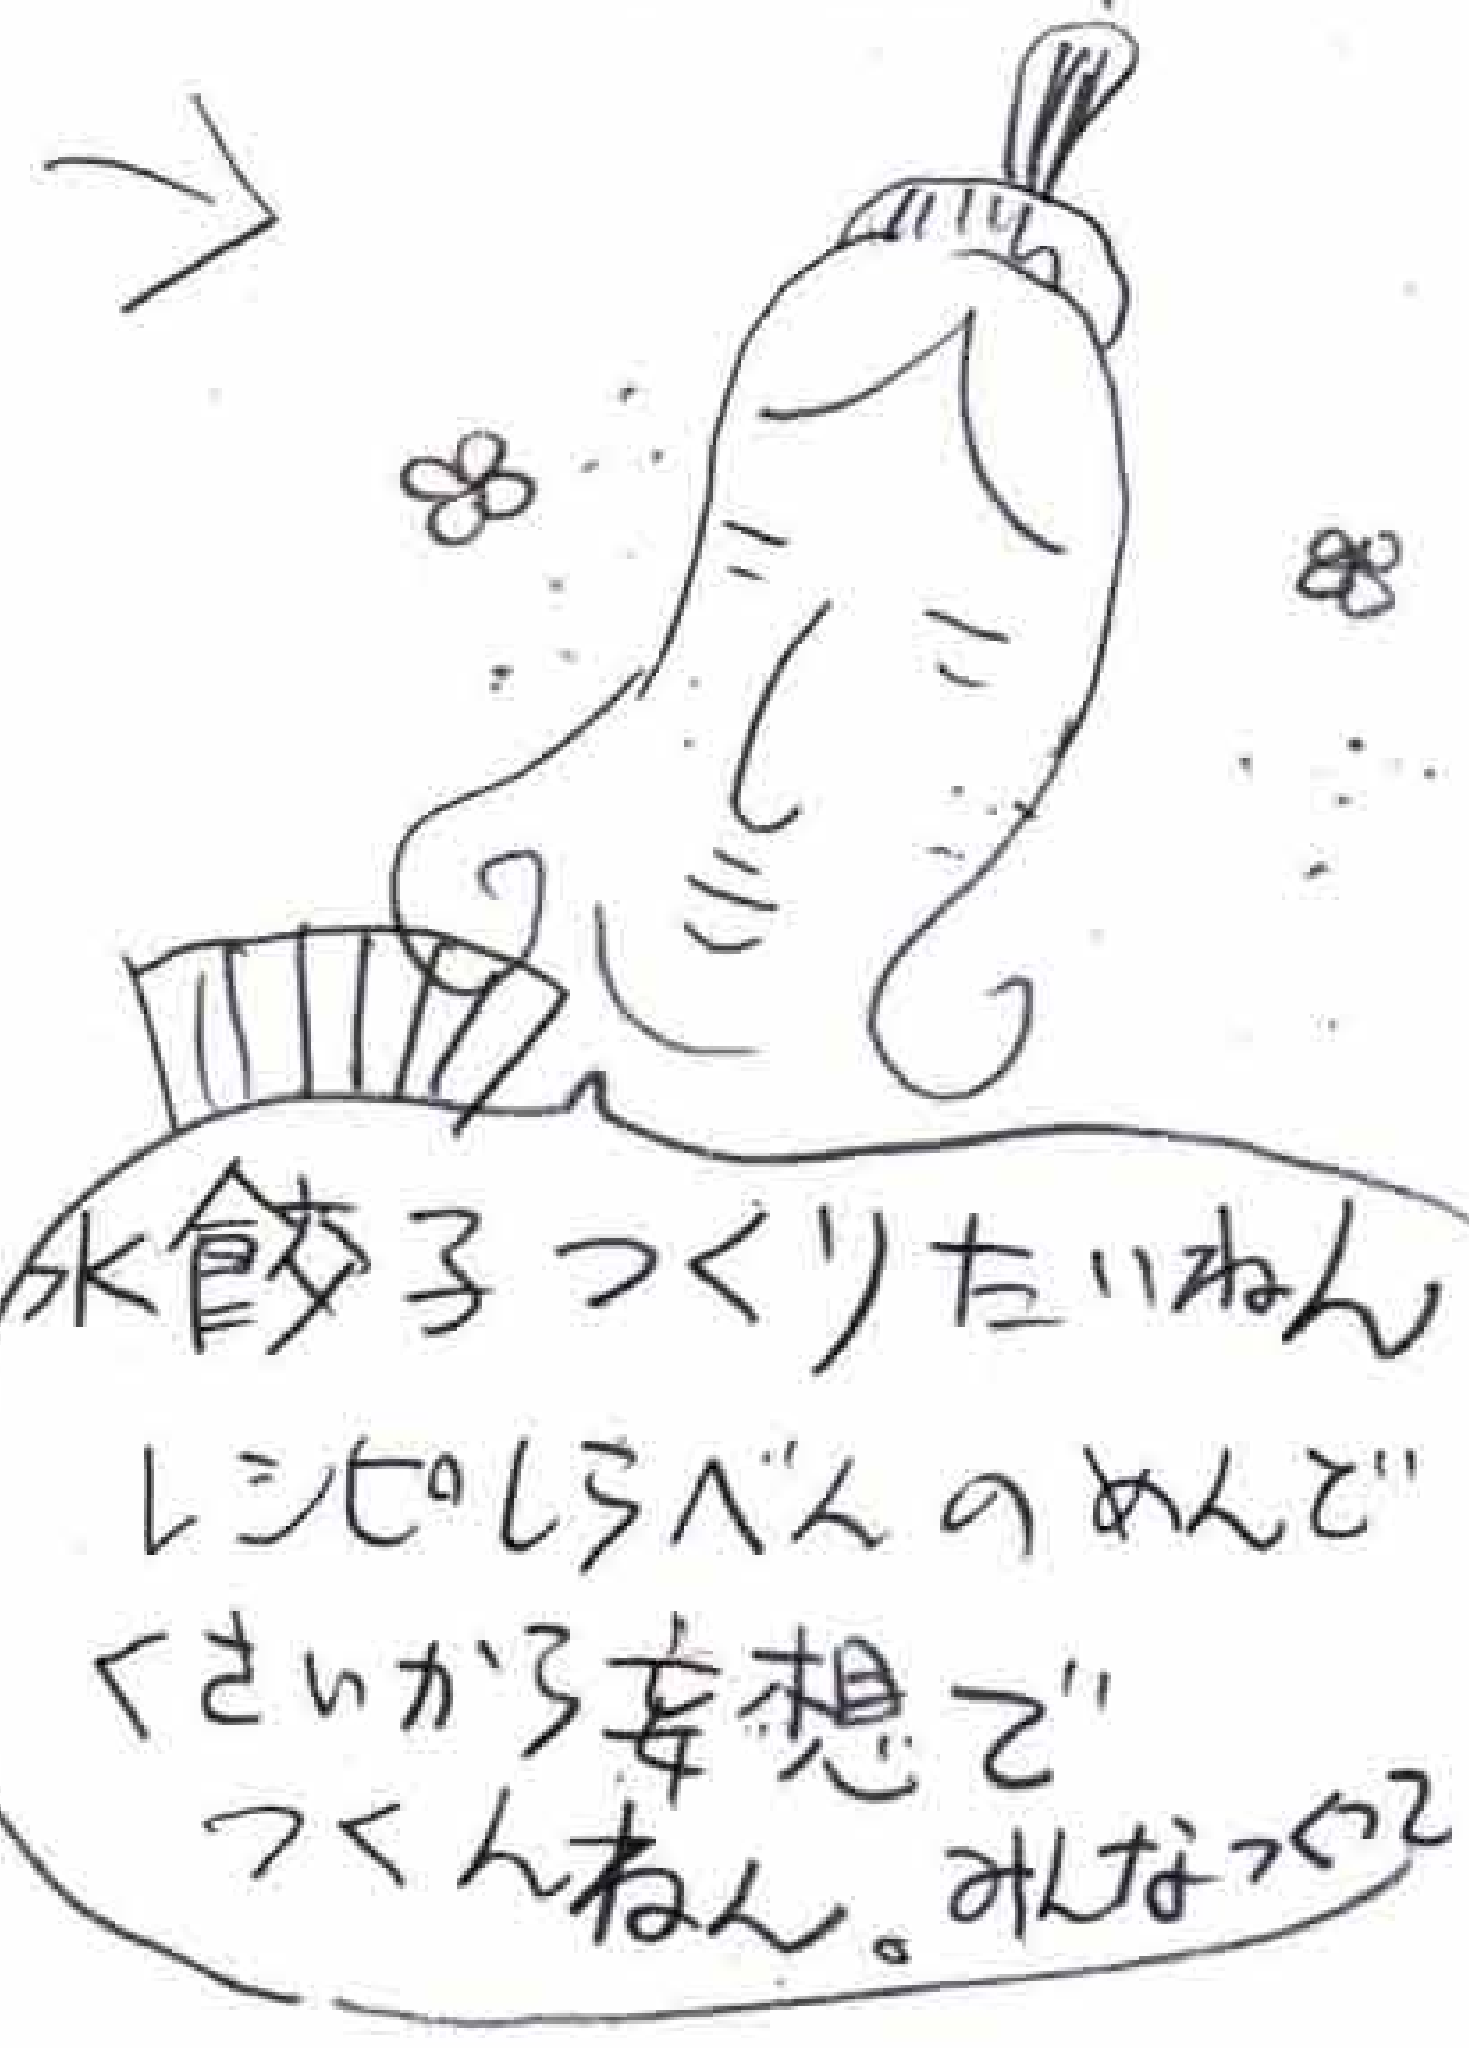 水餃子つくりたいねん
レシピしらべんのめんで
くさいから妄想で
つくんねん。みんなつくって